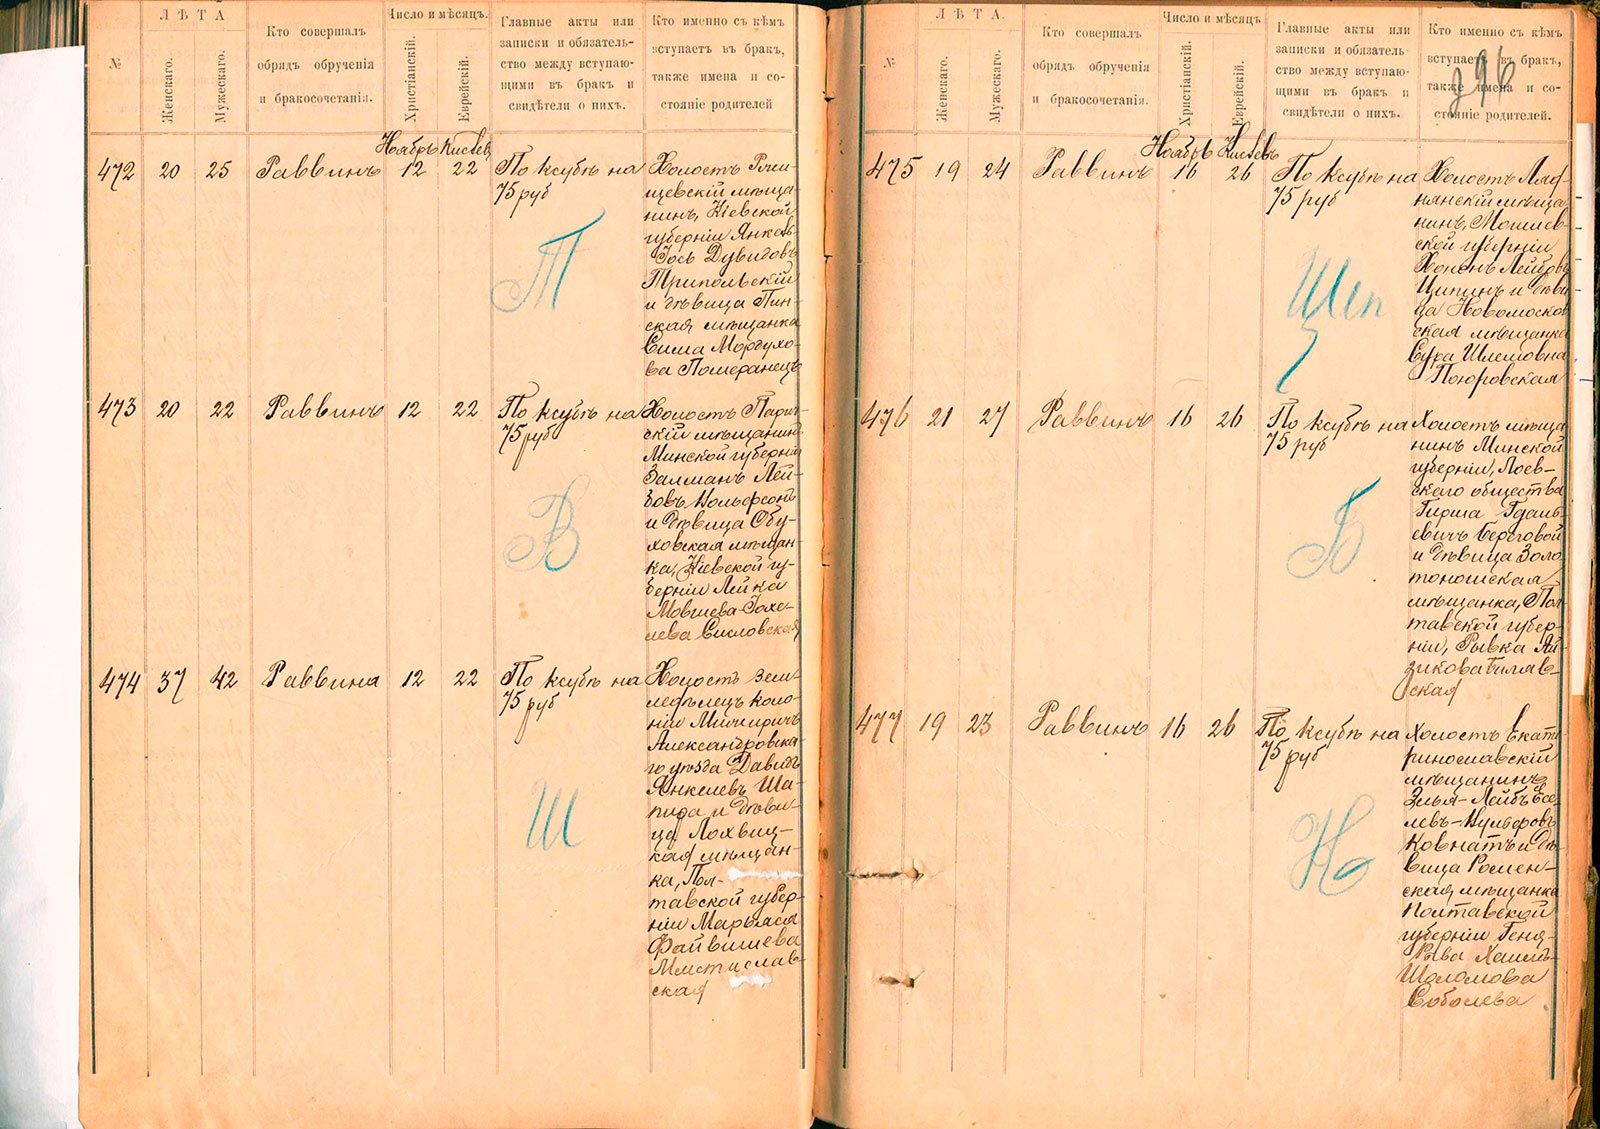 №
ЛѢТА
Женскаго.
Мужескаго.
Кто совершалъ
обрядъ обрученія
и бракосочетанія.
Число и мѣсяцъ.
Христіанскій.
Еврейскій.
Главные акты или
записки и обязатель-
ство между вступаю-
щими въ бракъ и
свидѣтели о нихъ.
Кто именно съ кѣмъ
вступаетъ въ бракъ,
также имена и со-
стояніе родителей
Ноябрь Кислевъ
472 20 25 Раввинъ 12 22
По ксубѣ на
75 руб
Т
Холостъ Ржи-
щевскій мѣща-
нинъ, Кіевской
губерніи Янкель-
Іось Дувидовъ
Трипольскій
и дѣвица Пин-
ская мѣщанка
Сима Мордухо-
ва Померанецъ
473 20 22 Раввинъ 12 22
По ксубѣ на
75 руб
В
Холостъ Парич-
скій мѣщанинъ
Минской губерніи
Залманъ Лей-
бовъ Вольфсонъ
и дѣвица Обу-
ховская мѣщан-
ка, Кіевской гу-
берніи Лейка
Мовшева-Іохе-
лева Сисловская
474 37 42 Раввина 12 22
По ксубѣ на
75 руб
Ш
Холостъ Зем-
ледѣлецъ коло-
ніи Мичиричъ
Александровска-
го уѣзда Давидъ
Янкелевъ Ша-
пира и дѣви-
ца Лохвиц-
кая мѣщан-
ка, Пол-
тавской губер-
ніи Марьяся
Файвишева
Мистислав-
ская
№
ЛѢТА.
Женскаго.
Мужескаго.
Кто совершалъ
обрядъ обрученія
и бракосочетанія.
Число и мѣсяцъ
Христіанскій.
Еврейскій.
Главные акты или
записки и обязатель-
ство между вступаю-
щими въ бракъ и
свидѣтели о нихъ.
Кто именно съ кѣмъ
вступаетъ въ бракъ,
также имена и со-
стояніе родителей.
296
Ноябрь Кислевъ
475 19 24 Раввинъ 16 26
По ксубѣ на
75 руб
Холостъ Ляд-
нянскій мѣща
нинъ, Могилев-
ской губерніи
Хононъ Лейбовъ
Ципинъ и дѣви
ца Новомосков
ская мѣщанка
Сура Шлемовна
476 21 27 Раввинъ 16 26
По ксубѣ на
75 руб
Б
Холостъ мѣща
нинъ Минской
губерніи, Лоев-
скаго общества
Гирша Гдаль-
евичъ Береговой
и дѣвица Золо
тоношская
мѣщанка, Пол
тавской губер-
ніи, Рывка Ай
зикова Биляв-
ская
477 19 23 Раввинъ 16 26
По ксубѣ на
75 руб
Н
Холостъ Екате
ринославскій
мѣщанинъ
Элья-Лейбъ Есе
левъ-Вульфовъ
Ковнатъ и дѣ
вица Ромен-
ская мѣщанка
Полтавской
губерніи Геня-
Рыва Хаимъ-
Шоломова
Соболева